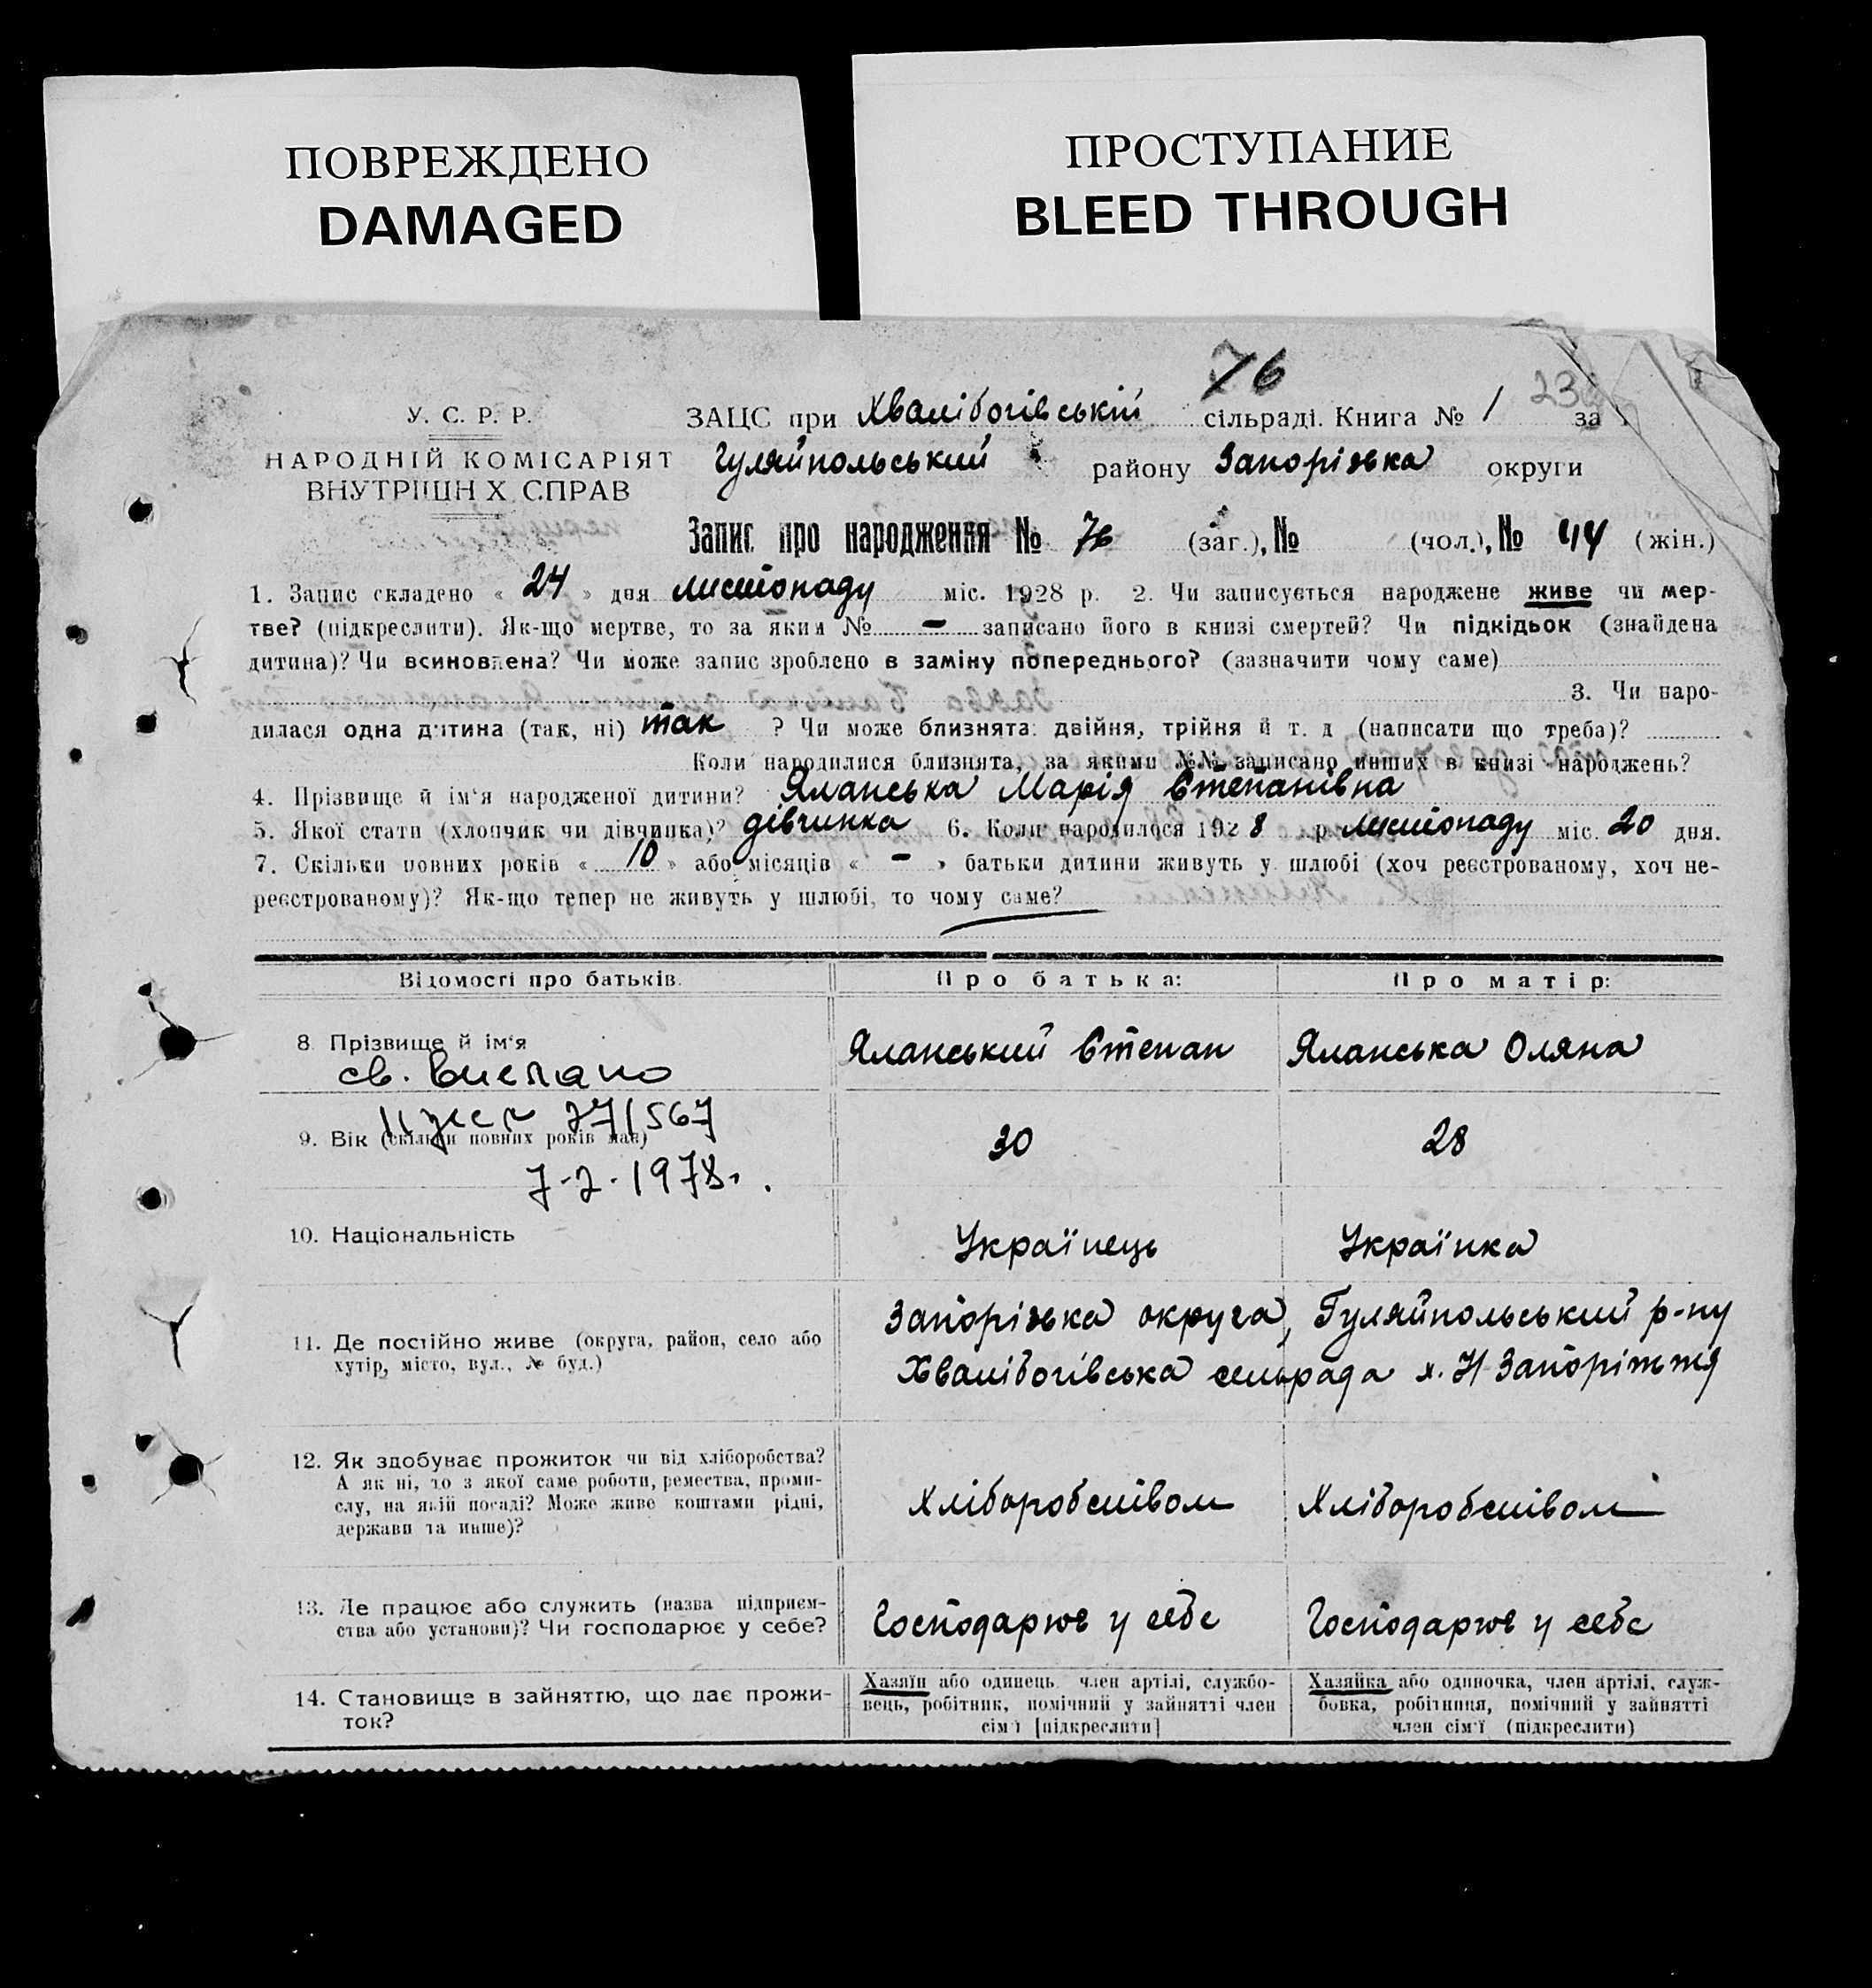 ПОВРЕЖДЕНО
DAMAGED
ПРОСТУПАНИЕ
BLEED THROUGH
76
У. С. Р. Р.
НАРОДНІЙ КОМІСАРІЯТ
ВНУТРІШН Х СПРАВ
ЗАЦС при Хвалібогівській сільраді. Книга № 1 за
Гуляйпольський району Запорізька округи
Запис про народження № 76 (заг.), № (чол.), № 44 (жін.)
1. Запис складено « 24 » дня листопаду міс. 1928 р. 2. Чи записується народжене живе чи мер-
тве? (підкреслити). Як-що мертве, то за яким № - записано його в книзі смертей? Чи підкідьок (знайдена
дитина)? Чи всиновлена? Чи може запис зроблено в заміну попереднього? (зазначити чому саме)
3. Чи наро-
дилася одна дитина (так, ні) так ? Чи може близнята: двійня, трійня й т. д (написати що треба)?
Коли народилися близнята, за якими №№ записано инших в книзі народжень?
4. Прізвище й ім‘я народженої дитини? Яланська Марія Степанівна
5. Якої стати (хлопчик чи дівчинка)? дівчинка 6. Коли народилося 1928 р листопаду міс. 20 дня.
7. Скільки повних років « 10 » або місяців « - » батьки дитини живуть у шлюбі (хоч реєстрованому, хоч не-
реєстрованому)? Як-що тепер не живуть у шлюбі, то чому саме?
Відомості про батьків. Про батька: Про матір:
8 Прізвище й ім‘я Яланський Степан Яланська Оляна
св. выслано
9. Вік (скільки повних років має) 30 28
7-2-1978.
10. Національність Українець Українка
11. Де постійно живе (округа, район, село або
хутір, місто, вул., № буд.)
Запорізька округа, Гуляйпольський р-ну
Хвалібогівська сельрада х. Н Запоріжжя
12. Як здобуває прожиток чи від хліборобства?
А як ні, то з якої саме роботи, ремества, проми-
слу, на якій посаді? Може живе коштами рідні,
держави та инше)?
Хліборобством Хліборобством
13. Де працює або служить (назва підприєм-
ства або установи)? Чи господарює у себе?
Господарює у себе Господарює у себе
14. Становище в зайняттю, що дає прожи-
ток?
Хазяїн або одинець член артілі, службо-
вець, робітник, помічний у зайнятті член
сім‘ї [підкреслити]
Хазяйка або одиночка, член артілі, служ-
бовка, робітниця, помічний у зайнятті
член сім‘ї (підкреслити)